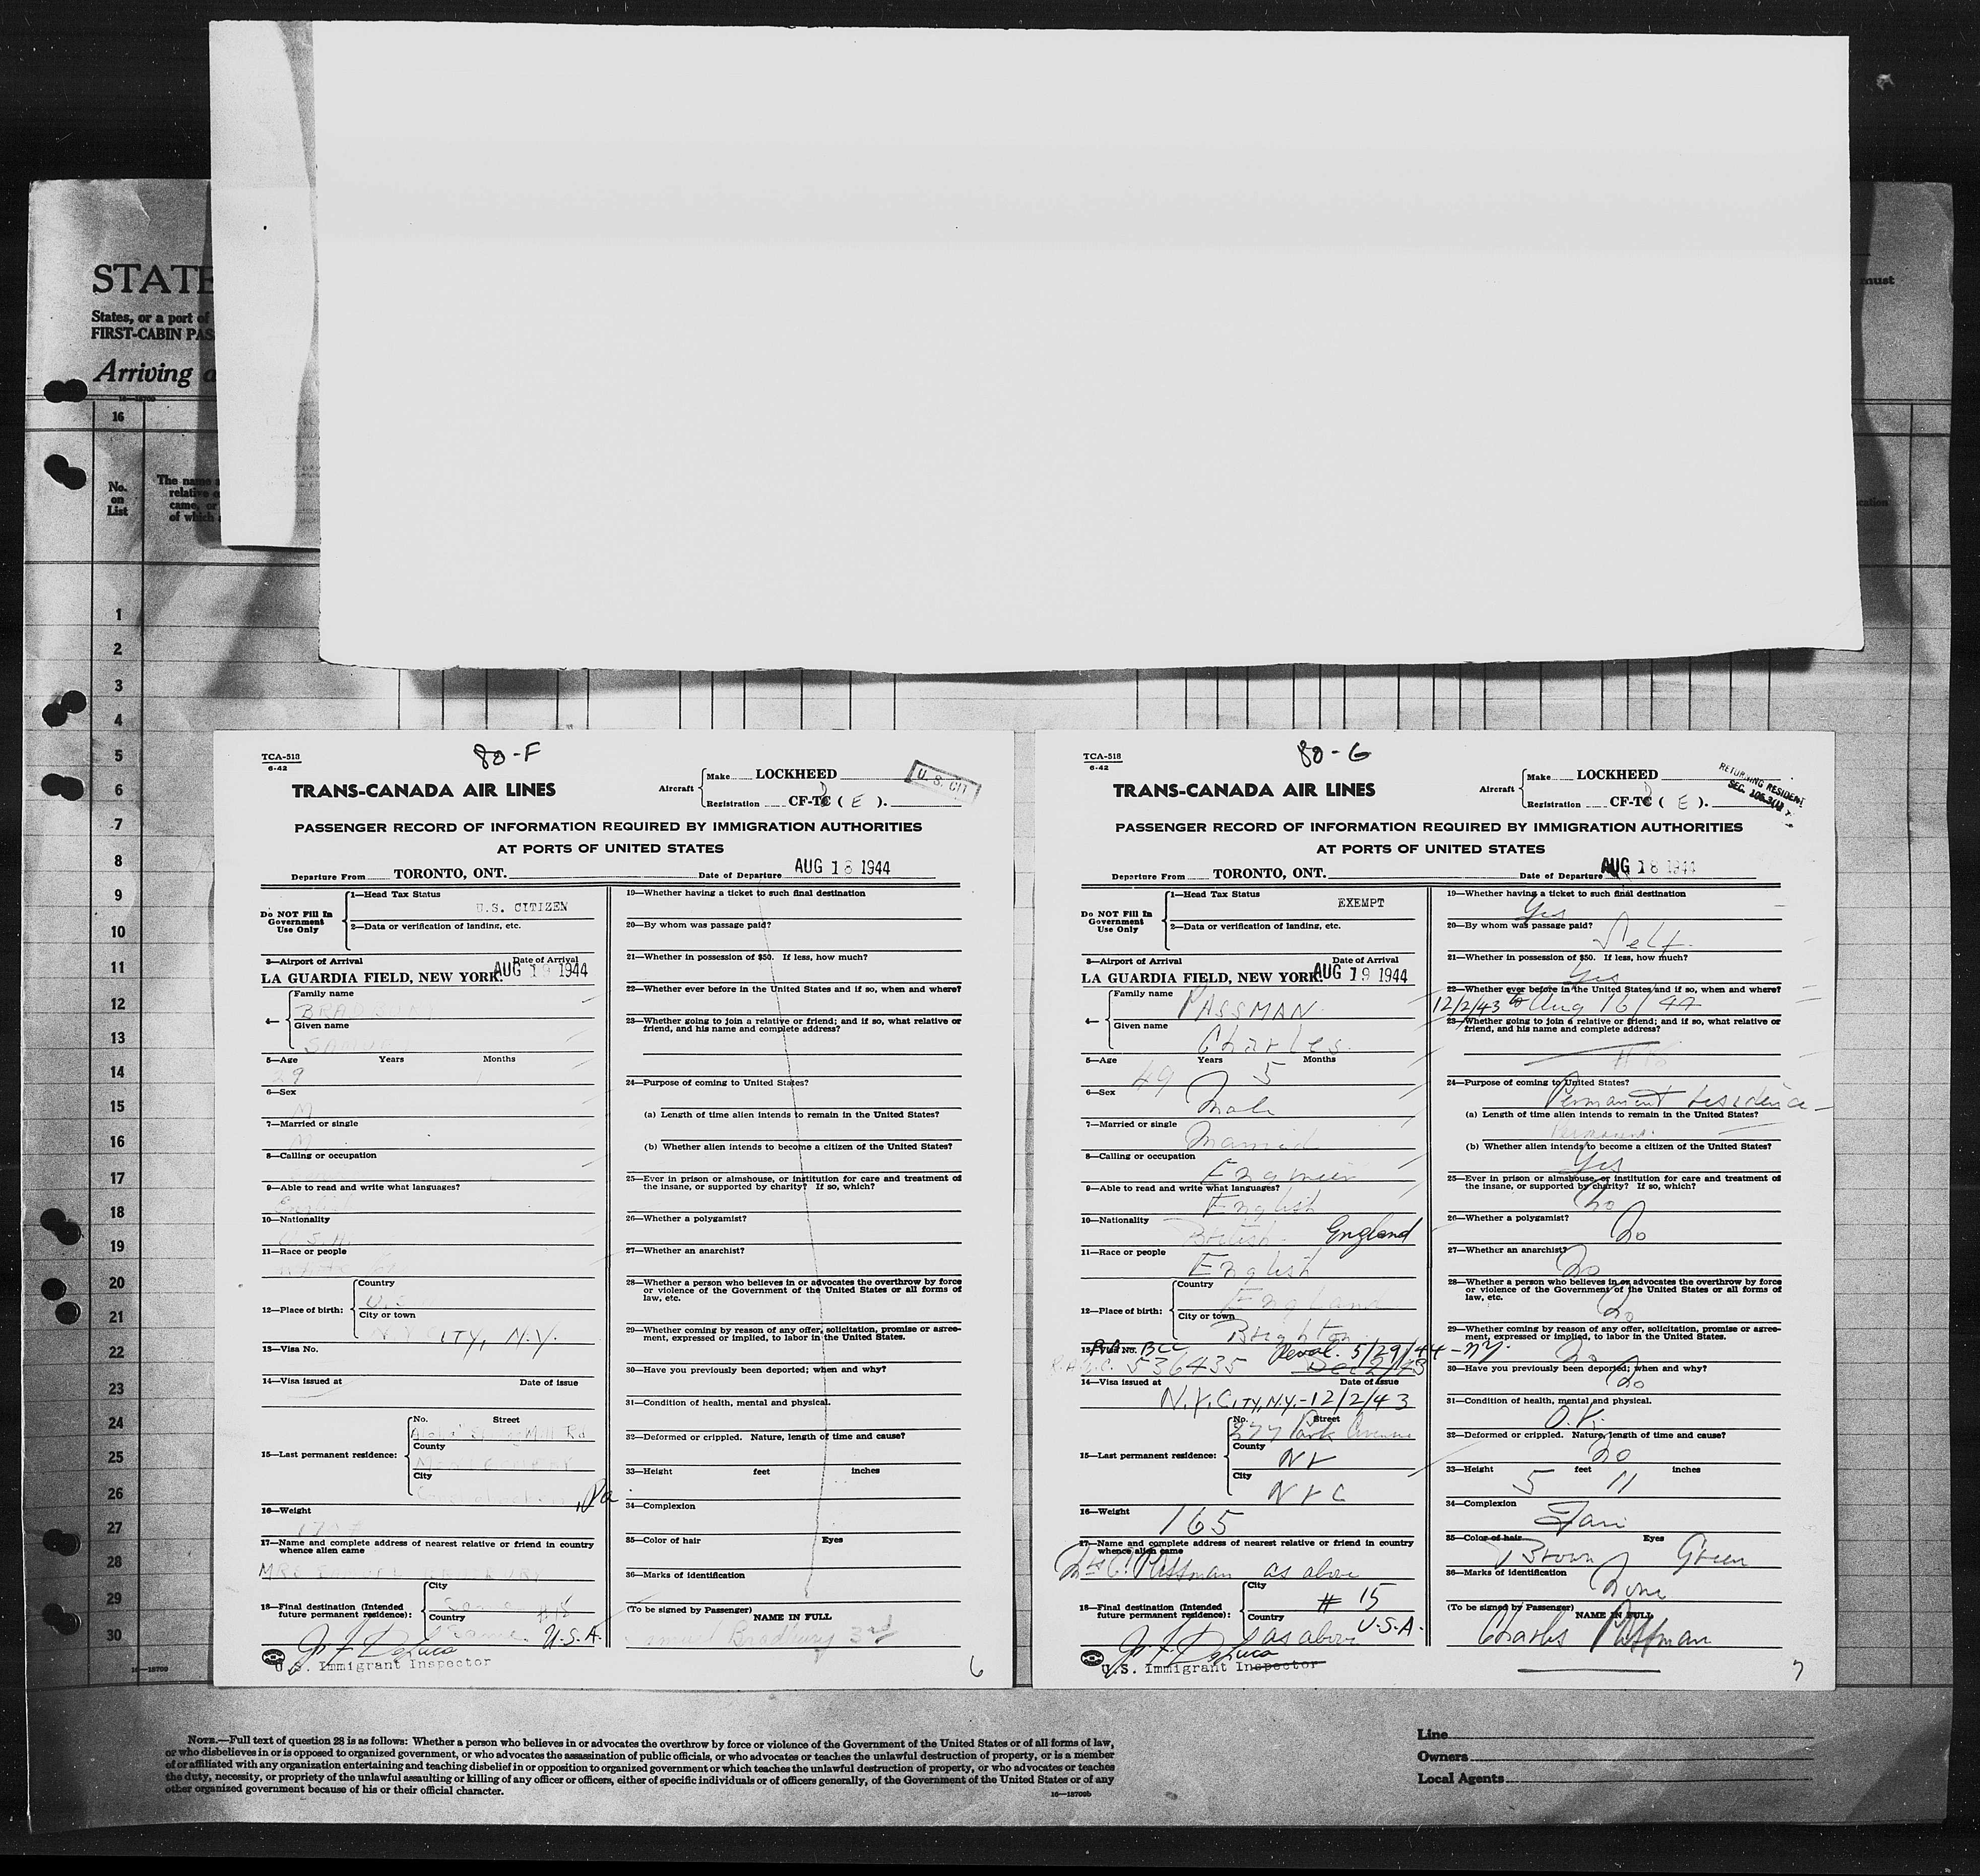 STATE
States, or a port of
FIRST-CABIN PAS
Arriving a
16
No.
on
List
The name
relative
came, or
of which
must
1
2
3
4
5
6
7
8
9
10
11
12
13
14
15
16
17
18
19
20
21
22
23
24
25
26
27
28
29
30
16—18709
TCA-518
6-42
80-F
TRANS-CANADA AIR LINES
Aircraft
Make LOCKHEED
Registration CF-TC ( E ).
U. S. CIT
PASSENGER RECORD OF INFORMATION REQUIRED BY IMMIGRATION AUTHORITIES
AT PORTS OF UNITED STATES
Departure From TORONTO, ONT. Date of Departure AUG 18 1944
Do NOT Fill In
Government
Use Only
1—Head Tax Status
U.S. CITIZEN
2—Data or verification of landing, etc.
3—Airport of Arrival Date of Arrival
LA GUARDIA FIELD, NEW YORK. AUG 19 1944
4—
Family name
BRADBURY
Given name
SAMUEL
5—Age Years Months
6—Sex
M
7—Married or single
M
8—Calling or occupation
9—Able to read and write what languages?
10—Nationality
11—Race or people
12—Place of birth:
Country
U.S.
City or town
N.Y. CITY, N.Y.
13—Visa No.
14—Visa issued at Date of issue
15—Last permanent residence:
No. Street
Mill Rd
County
City
, Pa
16—Weight
17—Name and complete address of nearest relative or friend in country
whence alien came
MRS SAMUEL BRADBURY
18—Final destination (Intended
future permanent residence):
City
Same #15
Country
Same U.S.A.
J. F. DeLuca
U.S. Immigrant Inspector
19—Whether having a ticket to such final destination
20—By whom was passage paid?
21—Whether in possession of $50. If less, how much?
22—Whether ever before in the United States and if so, when and where?
23—Whether going to join a relative or friend; and if so, what relative or
friend, and his name and complete address?
24—Purpose of coming to United States?
(a) Length of time alien intends to remain in the United States?
(b) Whether alien intends to become a citizen of the United States?
25—Ever in prison or almshouse, or institution for care and treatment of
the insane, or supported by charity? If so, which?
26—Whether a polygamist?
27—Whether an anarchist?
28—Whether a person who believes in or advocates the overthrow by force
or violence of the Government of the United States or all forms of
law, etc.
29—Whether coming by reason of any offer, solicitation, promise or agree-
ment, expressed or implied, to labor in the United States.
30—Have you previously been deported; when and why?
31—Condition of health, mental and physical.
32—Deformed or crippled. Nature, length of time and cause?
33—Height feet inches
34—Complexion
35—Color of hair Eyes
36—Marks of identification
(To be signed by Passenger) NAME IN FULL
Samuel Bradbury 3rd
6
TCA-518
6-42
80-G
TRANS-CANADA AIR LINES
Aircraft
Make LOCKHEED
Registration CF-TC ( E ).
RETURNING RESIDENT
PASSENGER RECORD OF INFORMATION REQUIRED BY IMMIGRATION AUTHORITIES
AT PORTS OF UNITED STATES
Departure From TORONTO, ONT. Date of Departure AUG 18 1944
Do NOT Fill In
Government
Use Only
1—Head Tax Status
EXEMPT
2—Data or verification of landing, etc.
3—Airport of Arrival Date of Arrival
LA GUARDIA FIELD, NEW YORK. AUG 19 1944
4—
Family name
PASSMAN
Given name
Charles
5—Age Years Months
49 5
6—Sex
Male
7—Married or single
Married
8—Calling or occupation
Engineer
9—Able to read and write what languages?
English
10—Nationality
British England
11—Race or people
English
12—Place of birth:
Country
England
City or town
Brighton
13—Visa No. Reval. 5/29/44-NY.
536435 Dec 2/43
14—Visa issued at Date of issue
N.Y. CITY, N.Y.-12/2/43
15—Last permanent residence:
No. Street
277 Park Avenue
County
NY
City
NYC
16—Weight
165
17—Name and complete address of nearest relative or friend in country
whence alien came
Mrs C. Passman as above
18—Final destination (Intended
future permanent residence):
City
# 15
Country U.S.A.
as above
J. F. DeLuca
U.S. Immigrant Inspector
19—Whether having a ticket to such final destination
Yes
20—By whom was passage paid?
Self
21—Whether in possession of $50. If less, how much?
Yes
22—Whether ever before in the United States and if so, when and where?
12/2/43 to Aug 16/44
23—Whether going to join a relative or friend; and if so, what relative or
friend, and his name and complete address?
24—Purpose of coming to United States?
Permanent residence
(a) Length of time alien intends to remain in the United States?
Permanent
(b) Whether alien intends to become a citizen of the United States?
Yes
25—Ever in prison or almshouse, or institution for care and treatment of
the insane, or supported by charity? If so, which?
No
26—Whether a polygamist?
No
27—Whether an anarchist?
No
28—Whether a person who believes in or advocates the overthrow by force
or violence of the Government of the United States or all forms of
law, etc.
No
29—Whether coming by reason of any offer, solicitation, promise or agree-
ment, expressed or implied, to labor in the United States.
No
30—Have you previously been deported; when and why?
No
31—Condition of health, mental and physical.
O.K.
32—Deformed or crippled. Nature, length of time and cause?
No
33—Height feet inches
5 11
34—Complexion
Fair
35—Color of hair Eyes
Brown Green
36—Marks of identification
None
(To be signed by Passenger) NAME IN FULL
Charles Passman
7
NOTE.—Full text of question 28 is as follows: Whether a person who believes in or advocates the overthrow by force or violence of the Government of the United States or of all forms of law,
or who disbelieves in or is opposed to organized government, or who advocates the assassination of public officials, or who advocates or teaches the unlawful destruction of property, or is a member
of or affiliated with any organization entertaining and teaching disbelief in or opposition to organized government or which teaches the unlawful destruction of property, or who advocates or teaches
the duty, necessity, or propriety of the unlawful assaulting or killing of any officer or officers, either of specific individuals or of officers generally, of the Government of the United States or of any
other organized government because of his or their official character.
16—18709b
Line
Owners
Local Agents